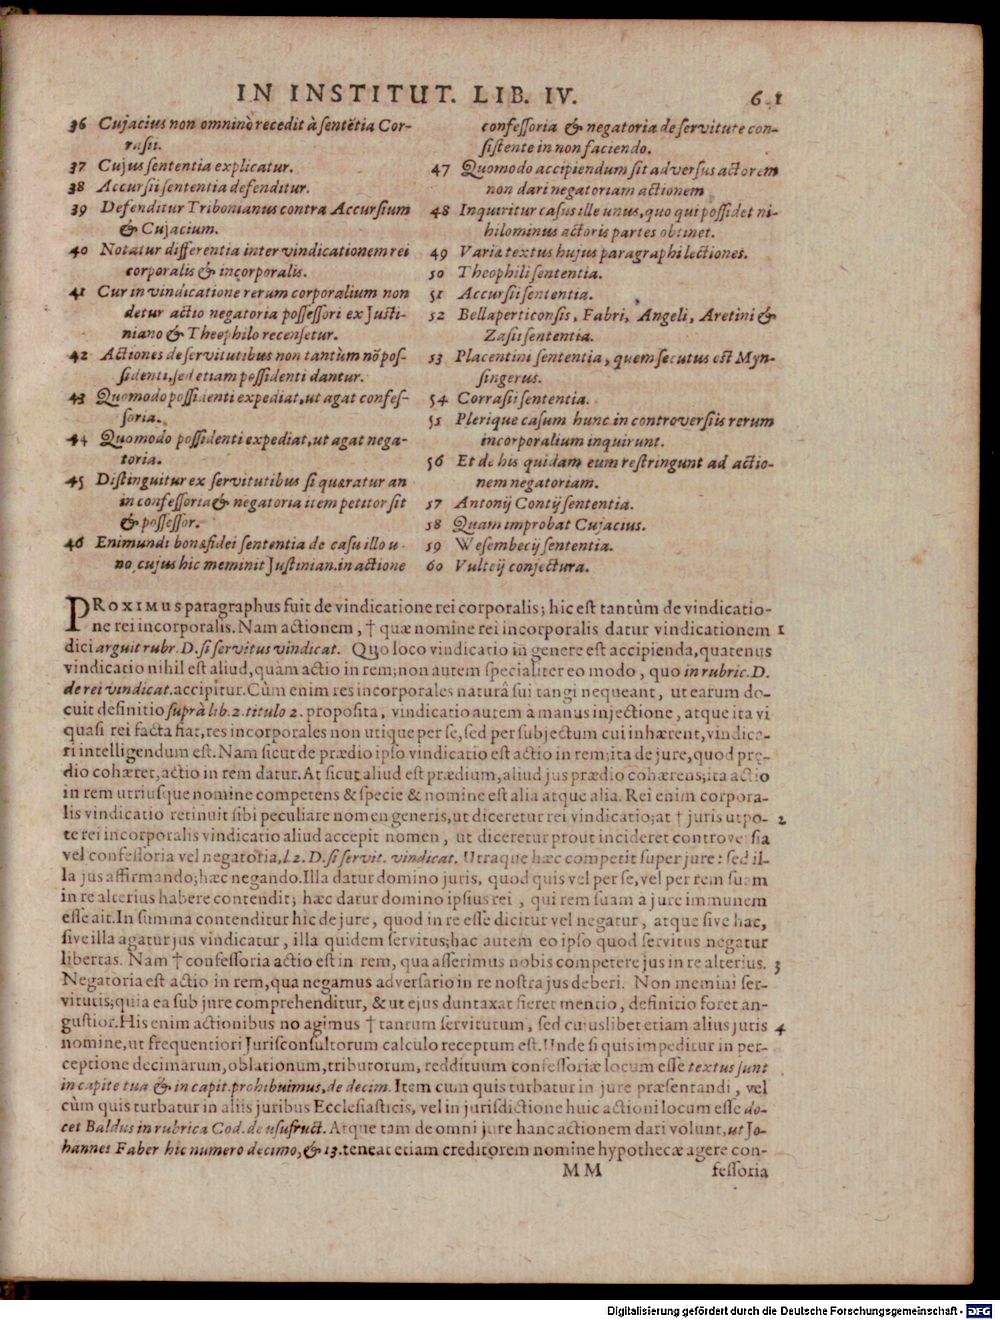 IN INSTITUT. LIB. IV.
36 Cujacius non omninò recedit à sentẽtia Cor-
rasii.
37 Cujus sententia explicatur.
38 Accursii sententia defenditur.
39 Defenditur Tribonianus contra Accursium
& Cujacium.
40 Notatur differentia inter vindicationem rei
corporalis & incorporalis.
41 Cur in vindicatione rerum corporalium non
detur actio negatoria possessori ex Justi-
niano & Theophilo recensetur.
42 Actiones de servitutibus non tantùm nõ pos-
sidenti, sed etiam possidenti dantur.
43 Quomodo possidenti expediat, ut agat confes-
soria.
44 Quomodo possidenti expediat, ut agat nega-
toria.
45 Distinguitur ex servitutibus si quæratur an
in confessoria & negatoria item petitor sit
& possessor.
46 Enimundi bonæfidei sententia de casu illo u-
no, cujus hic meminit Justinian. in actione
confessoria & negatoria de servitute con-
sistente in non faciendo.
47 Quomodo accipiendum sit adversus actorem
non dari negatoriam actionem
48 Inquiritur casus ille unus, quo qui possidet ni-
hilominus actoris partes obtinet.
49 Varia textus hujus paragraphi lectiones.
50 Theophili sententia.
51 Accursii sententia.
52 Bellaperticensis, Fabri, Angeli, Aretini &
Zasii sententia.
53 Placentini sententia, quem secutus est Myn-
singerus.
54 Corrasii sententia.
55 Plerique casum hunc in controversiis rerum
incorporalium inquirunt.
56 Et de his quidam eum restringunt ad actio-
nem negatoriam.
57 Antonij Contij sententia.
58 Quam improbat Cujacius.
59 Wesembecij sententia.
60 Vulteij conjectura.
PROXIMUS paragraphus fuit de vindicatione rei corporalis; hic est tantùm de vindicatio-
ne rei incorporalis. Nam actionem, † quæ nomine rei incorporalis datur vindicationem 1
dici arguit rubr. D. si servitus vindicat. Quo loco vindicatio in genere est accipienda, quatenus
vindicatio nihil est aliud, quàm actio in rem; non autem specialiter eo modo, quo in rubric. D.
de rei vindicat. accipitur. Cùm enim res incorporales naturâ sui tangi nequeant, ut earum do-
cuit definitio suprà lib. 2. titulo 2. proposita, vindicatio autem à manus injectione, atque ita vi
quasi rei facta fiat, res incorporales non utique per se, sed per subjectum cui inhærent, vindica-
ri intelligendum est. Nam sicut de prædio ipso vindicatio est actio in rem; ita de jure, quod prę-
dio cohæret, actio in rem datur. At sicut aliud est prædium, aliud jus prædio cohærens; ita actio
in rem utriusque nomine competens & specie & nomine est alia atque alia. Rei enim corpora-
lis vindicatio retinuit sibi peculiare nomen generis, ut diceretur rei vindicatio; at † juris utpo- 2
te rei incorporalis vindicatio aliud accepit nomen, ut diceretur prout incideret controversia
vel confessoria vel negatoria, l. 2. D. si servit. vindicat. Utraque hæc competit super jure: sed il-
la jus affirmando; hæc negando. Illa datur domino juris, quod quis vel per se, vel per rem suam
in re alterius habere contendit; hæc datur domino ipsius rei, qui rem suam à jure immunem
esse ait. In summa contenditur hic de jure, quod in re esse dicitur vel negatur, atque sive hac,
sive illa agatur jus vindicatur, illa quidem servitus; hac autem eo ipso quod servitus negatur
libertas. Nam † confessoria actio est in rem, qua asserimus nobis competere jus in re alterius. 3
Negatoria est actio in rem, qua negamus adversario in re nostra jus deberi. Non memini ser-
vitutis; quia ea sub jure comprehenditur, & ut ejus duntaxat fieret mentio, definitio foret an-
gustior. His enim actionibus no agimus † tantum servitutum, sed cujuslibet etiam alius juris 4
nomine, ut frequentiori Jurisconsultorum calculo receptum est. Unde si quis impeditur in per-
ceptione decimarum, oblationum, tributorum, reddituum confessoriæ locum esse textus sunt
in capite tua & in capit. prohibuimus, de decim. Item cum quis turbatur in jure præsentandi, vel
cùm quis turbatur in aliis juribus Ecclesiasticis, vel in jurisdictione huic actioni locum esse do-
cet Baldus in rubrica Cod. de usufruct. Atque tam de omni jure hanc actionem dari volunt, ut Jo-
hannes Faber hic numero decimo, & 13. teneat etiam creditorem nomine hypothecæ agere con-
MM fessoria
Digitalisierung gefördert durch die Deutsche Forschungsgemeinschaft - DFG